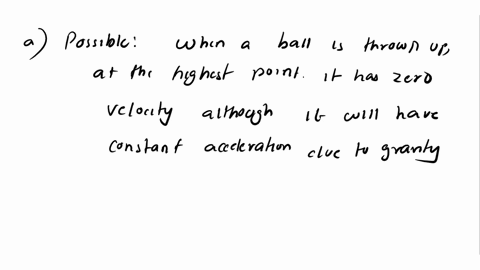 a) Possible: When a ball is thrown up,
at the highest point. it has zero
velocity although it will have
constant acceleration due to gravity